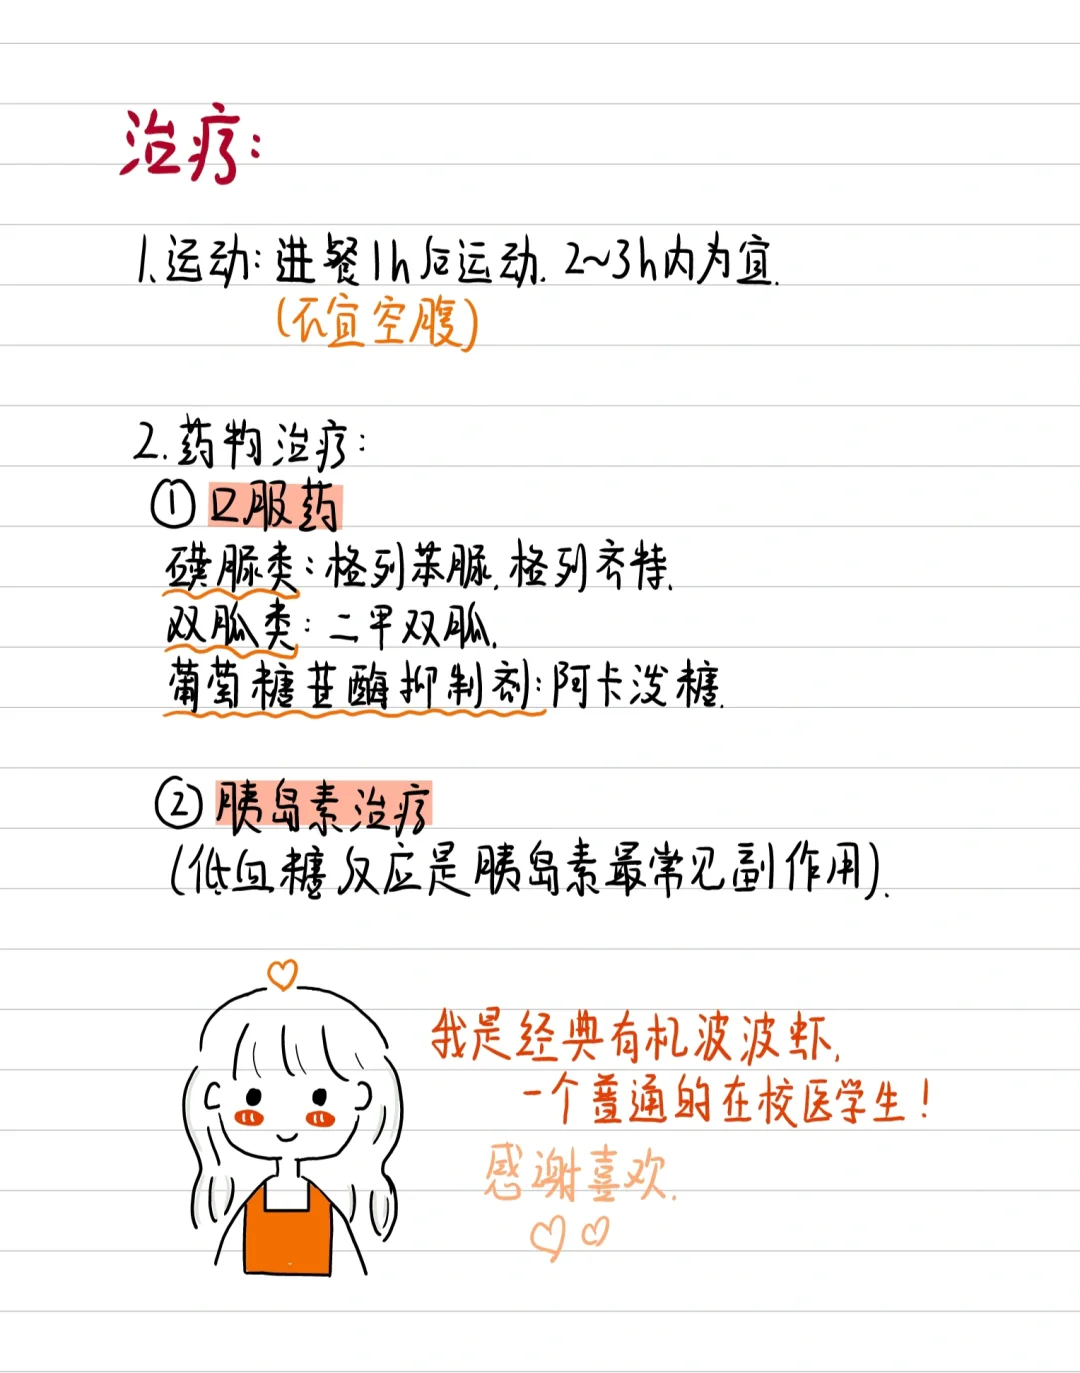 治疗:
1.运动:进餐1h后运动.2~3h内为宜.
(不宜空腹)
2.药物治疗:
①口服药
磺脲类:格列苯脲.格列齐特.
双胍类:二甲双胍.
葡萄糖苷酶抑制剂:阿卡波糖.
②胰岛素治疗
(低血糖反应是胰岛素最常见副作用).
我是经典有机波波虾,
一个普通的在校医学生!
感谢喜欢.